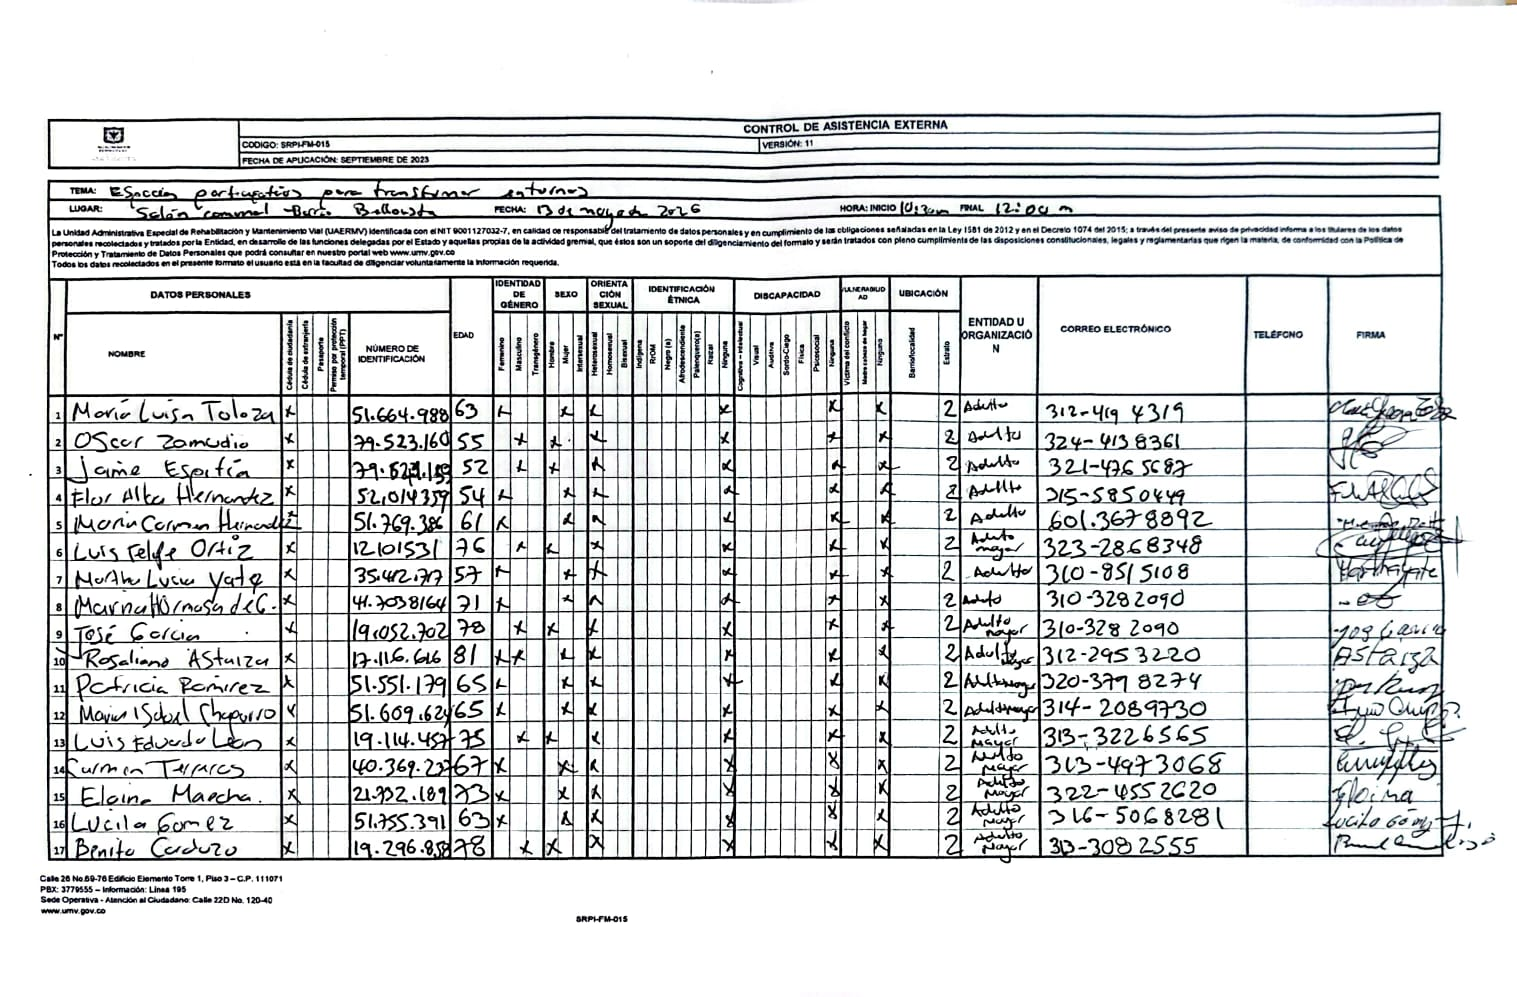 CONTROL DE ASISTENCIA EXTERNA
CODIGO: SRPI-FM-015 VERSIÓN: 11
FECHA DE APLICACIÓN: SEPTIEMBRE DE 2023
TEMA: Espacios participativos para transformar entornos
LUGAR: Salón comunal Barrio Bellavista FECHA: 13 de mayo de 2026 HORA: INICIO 10:30am FINAL 12:00 m
La Unidad Administrativa Especial de Rehabilitación y Mantenimiento Vial (UAERMV) identificada con el NIT 9001127032-7, en calidad de responsable del tratamiento de datos personales y en cumplimiento de las obligaciones señaladas en la Ley 1581 de 2012 y en el Decreto 1074 del 2015; a través del presente aviso de privacidad informa a los titulares de los datos
personales recolectados y tratados por la Entidad, en desarrollo de las funciones delegadas por el Estado y aquellas propias de la actividad gremial, que éstos son un soporte del diligenciamiento del formato y serán tratados con pleno cumplimiento de las disposiciones constitucionales, legales y reglamentarias que rigen la materia, de conformidad con la Política de
Protección y Tratamiento de Datos Personales que podrá consultar en nuestro portal web www.umv.gov.co
Todos los datos recolectados en el presente formato el usuario está en la facultad de diligenciar voluntariamente la información requerida.
N° DATOS PERSONALES EDAD IDENTIDAD DE GÉNERO SEXO ORIENTACIÓN SEXUAL IDENTIFICACIÓN ÉTNICA DISCAPACIDAD VULNERABILIDAD UBICACIÓN ENTIDAD U ORGANIZACIÓN CORREO ELECTRÓNICO TELÉFONO FIRMA
NOMBRE Cédula de ciudadanía Cédula de extranjería Pasaporte Permiso por protección temporal (PPT) NÚMERO DE IDENTIFICACIÓN Femenino Masculino Transgénero Hombre Mujer Intersexual Heterosexual Homosexual Bisexual Indígena RrOM Negro (a) Afrodescendiente Palenquero(a) Raizal Ninguna Cognitiva - Intelectual Visual Auditiva Sordo-Ciego Física Psicosocial Ninguna Víctima del conflicto Madre cabeza de hogar Ninguno Barrio/localidad Estrato
1 María Luisa Toloza x 51.664.988 63 x x x x x x 2 Adulto 312-419 4319
2 Oscar Zamudio x 79.523.160 55 x x x x x x 2 Adulto 324-413 8361
3 Jaime Espitia x 52 x x x x x x 2 Adulto 321-476 5687
4 Flor Alba Hernandez x 52.014359 54 x x x x x x 2 Adulto 315-5850449
5 Maria Carmen Hernandez x 51.769.386 61 x x x x x x 2 Adulto 601.3678892
6 Luis Felipe Ortiz x 12101531 76 x x x x x x 2 Adulto mayor 323-2868348
7 Martha Lucia Yate x 35.412.717 57 x x x x x x 2 Adulto 310-8515108
8 Marina Hormosa de G. x 41.7038164 71 x x x x x x 2 Adulto 310-3282090
9 José Garcia x 19.052.702 78 x x x x x x 2 Adulto mayor 310-328 2090 Jose Garcia
10 Rosaliano Astaiza x 17.116.616 81 x x x x x x x 2 Adulto mayor 312-295 3220 Astaiza
11 Patricia Ramirez x 51.551.179 65 x x x x x x 2 Adulto mayor 320-379 8274
12 Maria Isabel Chaparro x 51.609.624 65 x x x x x x 2 Adulto mayor 314-2089730
13 Luis Eduardo León x 19.114.457 75 x x x x x x 2 Adulto Mayor 313-3226565
14 Carmen Terreros x 40.369.237 67 x x x x x x 2 Adulto Mayor 313-4973068
15 Eloina Marcha. x 21.732.189 73 x x x x x x 2 Adulto Mayor 322-4552620 Eloina
16 Lucila Gomez x 51.755.391 63 x x x x x x 2 Adulto Mayor 316-5068281 Lucila Gómez
17 Benito Carduzo x 19.296.858 78 x x x x x x 2 Adulto Mayor 313-308 2555
Calle 26 No.69-76 Edificio Elemento Torre 1, Piso 3 – C.P. 111071
PBX: 3779555 – Información: Línea 195
Sede Operativa - Atención al Ciudadano: Calle 22D No. 120-40
www.umv.gov.co
SRPI-FM-015